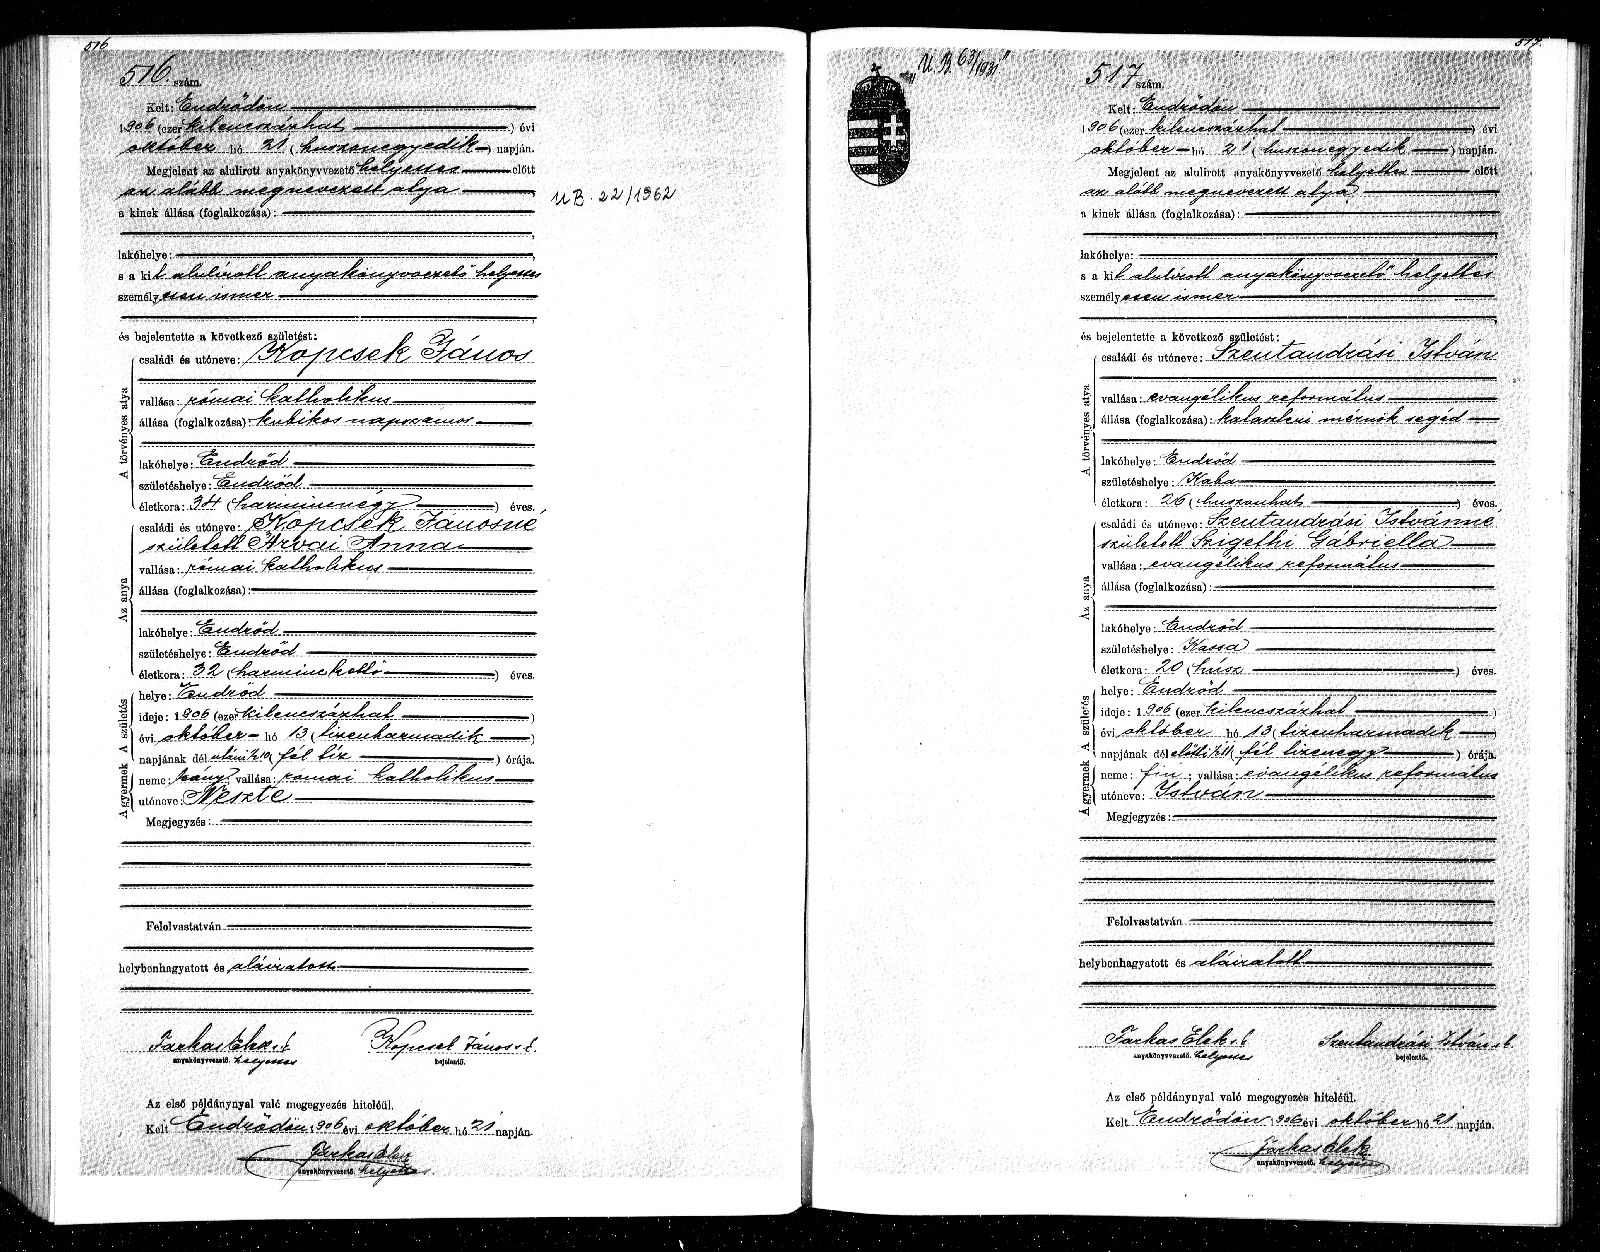 516
516. szám.
Kelt: Endrődön
1906 (ezer kilencszázhat) évi
október hó 21 (huszonegyedik) napján.
Megjelent az alulirott anyakönyvvezető helyettes előtt
az alább megnevezett atya
a kinek állása (foglalkozása):
lakóhelye:
s a kit alulírott anyakönyvvezető helyettes
személyesen ismer
és bejelentette a következő születést:
A törvényes atya
családi és utóneve: Kopcsek János
vallása: római katholikus
állása (foglalkozása): kubikos napszámos
lakóhelye: Endrőd
születéshelye: Endrőd
életkora: 34 (harmincnégy) éves.
Az anya
családi és utóneve: Kopcsek Jánosné
született Árvai Anna
vallása: római katholikus
állása (foglalkozása):
lakóhelye: Endrőd
születéshelye: Endrőd
életkora: 32 (harminckettő) éves.
A születés
helye: Endrőd
ideje: 1906 (ezer kilencszázhat)
évi október hó 13 (tizenharmadik)
napjának dél utáni 1/2 10 (fél tíz) órája.
A gyermek
neme: leány; vallása: római katholikus
utóneve: Neszte
Megjegyzés:
Felolvastatván
helybenhagyatott és aláiratott
Farkas Elek s. k. Kopcsek János s. k.
anyakönyvvezető. helyettes bejelentő.
Az első példánynyal való megegyezés hiteléül.
Kelt Endrődön 1906 évi október hó 21 napján.
Farkas Elek
anyakönyvvezető. helyettes
UB. 22/1962
517.
"U. B. 63/1931"
517 szám.
Kelt: Endrődön
1906 (ezer kilencszázhat) évi
október hó 21 (huszonegyedik) napján.
Megjelent az alulirott anyakönyvvezető helyettes előtt
az alább megnevezett atya
a kinek állása (foglalkozása):
lakóhelye:
s a kit alulírott anyakönyvvezető helyettes
személyesen ismer
és bejelentette a következő születést:
A törvényes atya
családi és utóneve: Szentandrási István
vallása: evangélikus református
állása (foglalkozása): kataszteri mérnök segéd
lakóhelye: Endrőd
születéshelye: Kaba
életkora: 26 (huszonhat) éves.
Az anya
családi és utóneve: Szentandrási Istvánné
született Szigethi Gábriella
vallása: evangélikus református
állása (foglalkozása):
lakóhelye: Endrőd
születéshelye: Kassa
életkora: 20 (húsz) éves.
A születés
helye: Endrőd
ideje: 1906 (ezer kilencszázhat)
évi október hó 13 (tizenharmadik)
napjának dél előtti 1/2 11 (fél tizenegy) órája.
A gyermek
neme: fiu; vallása: evangélikus református
utóneve: István
Megjegyzés:
Felolvastatván
helybenhagyatott és aláiratott
Farkas Elek s. k. Szentandrási István s. k.
anyakönyvvezető. helyettes bejelentő.
Az első példánynyal való megegyezés hiteléül.
Kelt Endrődön 1906 évi október hó 21 napján.
Farkas Elek
anyakönyvvezető. helyettes